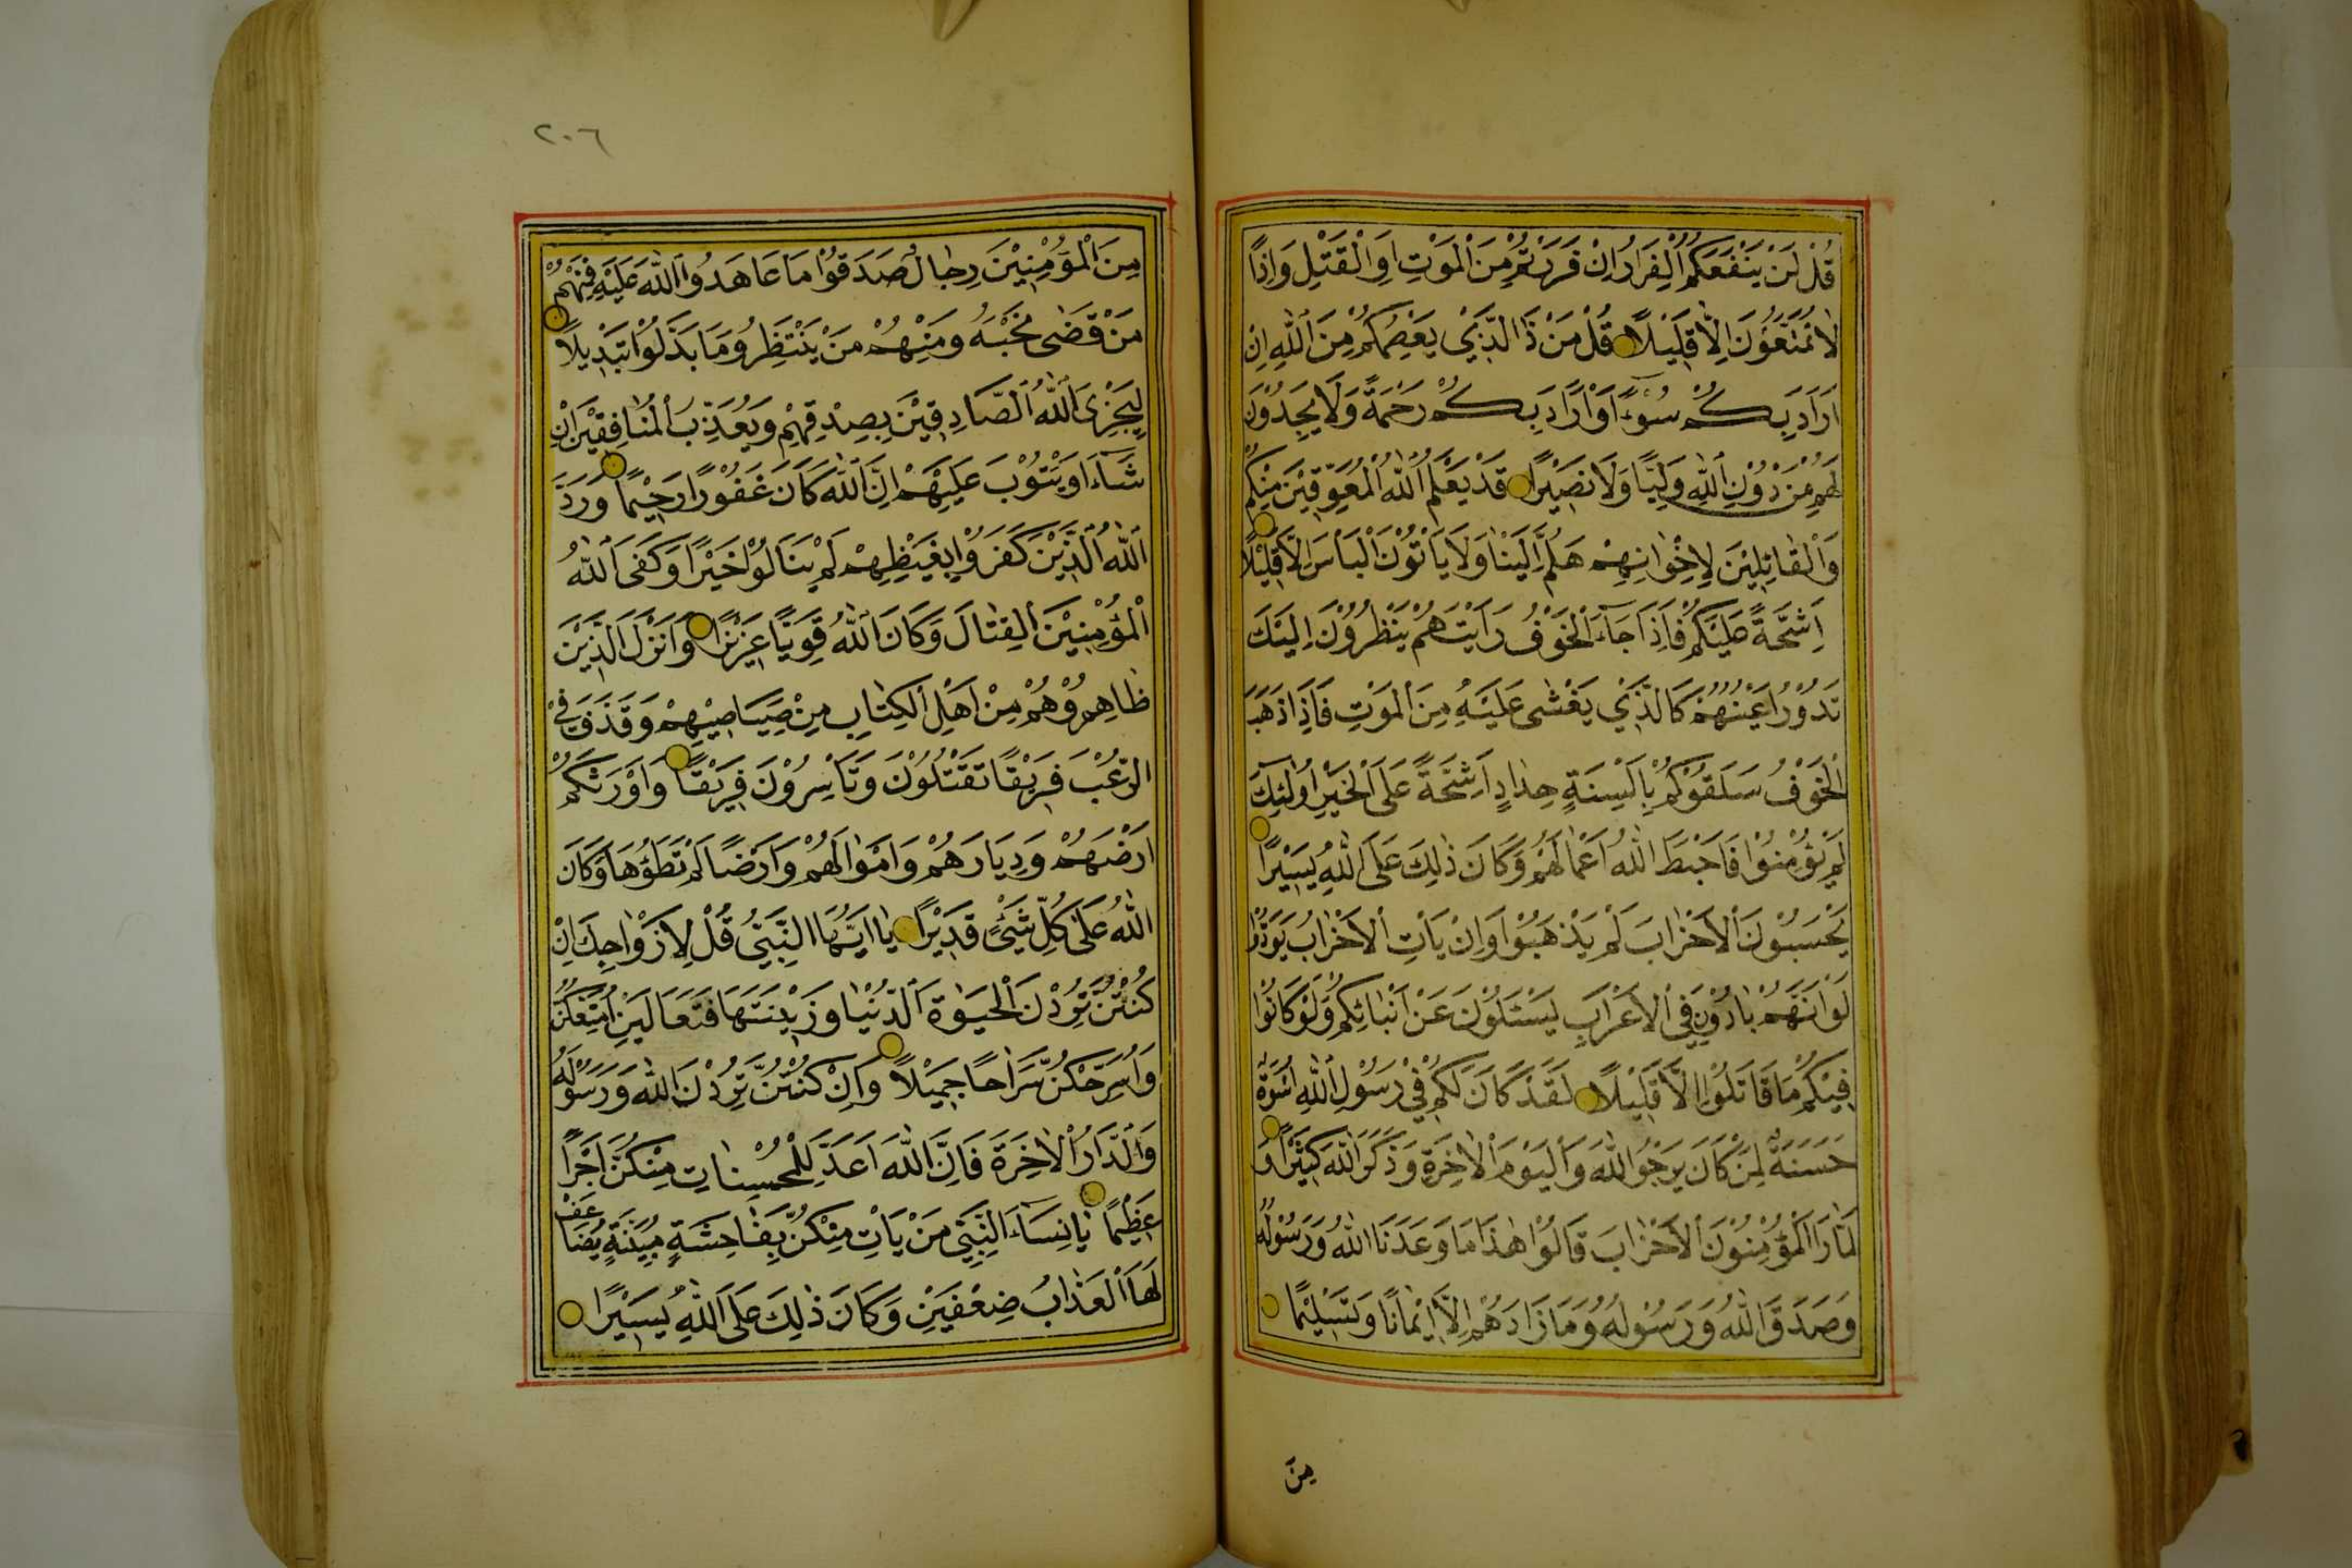 قُلْ لَنْ يَنْفَعَكُمُ الْفِرَارُ اِنْ فَرَرْتُمْ مِنَ الْمَوْتِ اَوِ الْقَتْلِ وَاِذًا
لَا تُمَتَّعُونَ اِلَّا قَلِيْلًا قُلْ مَنْ ذَا الَّذِيْ يَعْصِمُكُمْ مِنَ اللّٰهِ اِنْ
اَرَادَ بِكُمْ سُوْءًا اَوْ اَرَادَ بِكُمْ رَحْمَةً وَلَا يَجِدُوْنَ
لَهُمْ مِنْ دُوْنِ اللّٰهِ وَلِيًّا وَلَا نَصِيْرًا قَدْ يَعْلَمُ اللّٰهُ الْمُعَوِّقِيْنَ مِنْكُمْ
وَالْقَائِلِيْنَ لِاِخْوَانِهِمْ هَلُمَّ اِلَيْنَا وَلَا يَاْتُوْنَ الْبَاْسَ اِلَّا قَلِيْلًا
اَشِحَّةً عَلَيْكُمْ فَاِذَا جَآءَ الْخَوْفُ رَاَيْتَهُمْ يَنْظُرُوْنَ اِلَيْكَ
تَدُوْرُ اَعْيُنُهُمْ كَالَّذِيْ يُغْشٰى عَلَيْهِ مِنَ الْمَوْتِ فَاِذَا ذَهَبَ
الْخَوْفُ سَلَقُوْكُمْ بِاَلْسِنَةٍ حِدَادٍ اَشِحَّةً عَلَى الْخَيْرِ اُولٰئِكَ
لَمْ يُؤْمِنُوْا فَاَحْبَطَ اللّٰهُ اَعْمَالَهُمْ وَكَانَ ذٰلِكَ عَلَى اللّٰهِ يَسِيْرًا
يَحْسَبُوْنَ الْاَحْزَابَ لَمْ يَذْهَبُوْا وَاِنْ يَاْتِ الْاَحْزَابُ يَوَدُّوْا
لَوْ اَنَّهُمْ بَادُوْنَ فِي الْاَعْرَابِ يَسْئَلُوْنَ عَنْ اَنْبَائِكُمْ وَلَوْ كَانُوْا
فِيْكُمْ مَا قَاتَلُوْا اِلَّا قَلِيْلًا لَقَدْ كَانَ لَكُمْ فِيْ رَسُوْلِ اللّٰهِ اُسْوَةٌ
حَسَنَةٌ لِمَنْ كَانَ يَرْجُوا اللّٰهَ وَالْيَوْمَ الْاٰخِرَةِ وَذَكَرَ اللّٰهَ كَثِيْرًا وَ
لَمَّا رَاَ الْمُؤْمِنُوْنَ الْاَحْزَابَ قَالُوْا هٰذَا مَا وَعَدَنَا اللّٰهُ وَرَسُوْلُهُ
وَصَدَقَ اللّٰهُ وَرَسُوْلُهُ وَمَا زَادَهُمْ اِلَّا اِيْمَانًا وَتَسْلِيْمًا
مِنَ
٢٠٦
مِنَ الْمُؤْمِنِيْنَ رِجَالٌ صَدَقُوْا مَا عَاهَدُوا اللّٰهَ عَلَيْهِ فَمِنْهُمْ
مَنْ قَضٰى نَحْبَهُ وَمِنْهُمْ مَنْ يَنْتَظِرُ وَمَا بَدَّلُوْا تَبْدِيْلًا
لِيَجْزِيَ اللّٰهُ الصَّادِقِيْنَ بِصِدْقِهِمْ وَيُعَذِّبَ الْمُنَافِقِيْنَ اِنْ
شَآءَ اَوْ يَتُوْبَ عَلَيْهِمْ اِنَّ اللّٰهَ كَانَ غَفُوْرًا رَحِيْمًا وَرَدَّ
اللّٰهُ الَّذِيْنَ كَفَرُوْا بِغَيْظِهِمْ لَمْ يَنَالُوْا خَيْرًا وَكَفَى اللّٰهُ
الْمُؤْمِنِيْنَ الْقِتَالَ وَكَانَ اللّٰهُ قَوِيًّا عَزِيْزًا وَاَنْزَلَ الَّذِيْنَ
ظَاهَرُوْهُمْ مِنْ اَهْلِ الْكِتَابِ مِنْ صَيَاصِيْهِمْ وَقَذَفَ فِيْ
الرُّعْبَ فَرِيْقًا تَقْتُلُوْنَ وَتَاْسِرُوْنَ فَرِيْقًا وَاَوْرَثَكُمْ
اَرْضَهُمْ وَدِيَارَهُمْ وَاَمْوَالَهُمْ وَاَرْضًا لَمْ تَطَؤُهَا وَكَانَ
اللّٰهُ عَلٰى كُلِّ شَيْءٍ قَدِيْرًا يَا اَيُّهَا النَّبِيُّ قُلْ لِاَزْوَاجِكَ اِنْ
كُنْتُنَّ تُرِدْنَ الْحَيٰوةَ الدُّنْيَا وَزِيْنَتَهَا فَتَعَالَيْنَ اُمَتِّعْكُنَّ
وَاُسَرِّحْكُنَّ سَرَاحًا جَمِيْلًا وَاِنْ كُنْتُنَّ تُرِدْنَ اللّٰهَ وَرَسُوْلَهُ
وَالدَّارَ الْاٰخِرَةَ فَاِنَّ اللّٰهَ اَعَدَّ لِلْمُحْسِنَاتِ مِنْكُنَّ اَجْرًا
عَظِيْمًا يَا نِسَآءَ النَّبِيِّ مَنْ يَاْتِ مِنْكُنَّ بِفَاحِشَةٍ مُبَيِّنَةٍ يُضَاعَفْ
لَهَا الْعَذَابُ ضِعْفَيْنِ وَكَانَ ذٰلِكَ عَلَى اللّٰهِ يَسِيْرًا